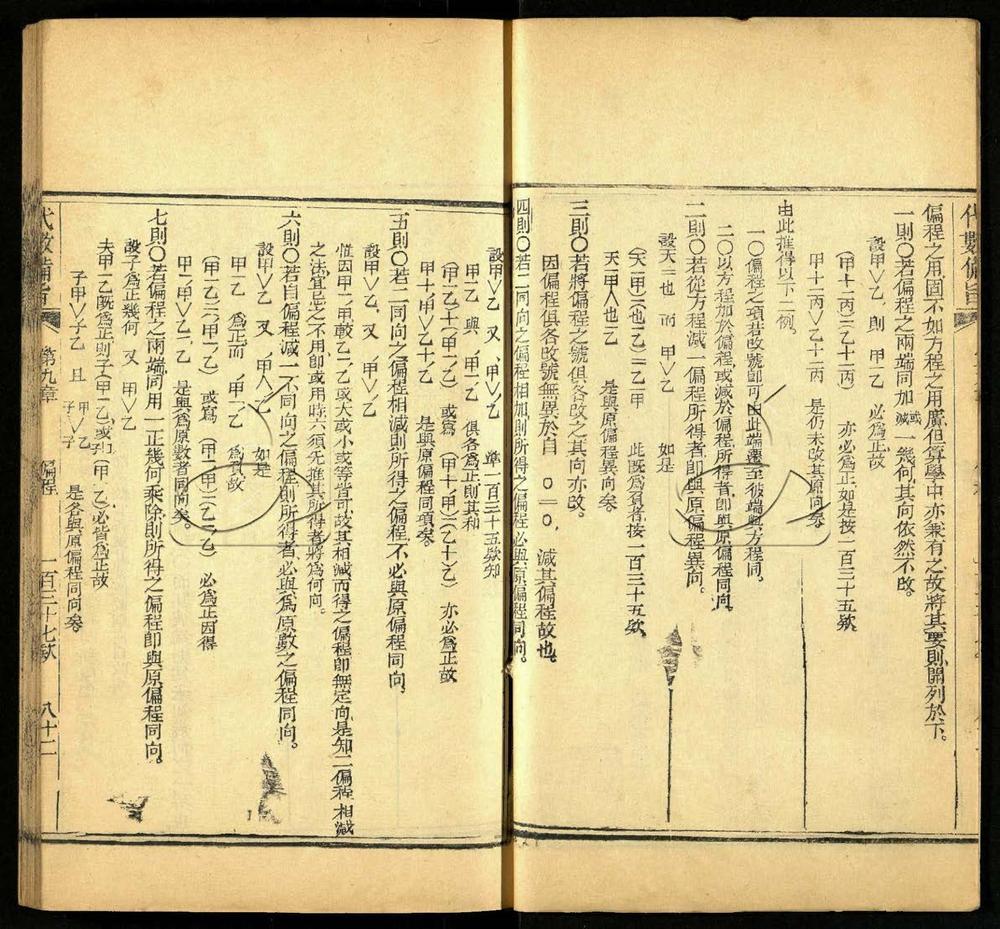 代數備旨
偏程之用固不如方程之用廣但算學中亦兼有之故將其要則開列於下。
一則〇若偏程之兩端同加或減一幾何其向依然不改。
設甲∨乙則甲一乙必爲正故
(甲十丙)一(乙十丙)亦必爲正如是按一百三十五欵
甲十丙∨乙十丙是仍未改其原向矣
由此推得以下二例
一〇偏程之項若改號卽可由此端遷至彼端與方程同。
二〇以方程加於偏程或減於偏程所得者卽與原偏程同向。
二則〇若從方程減一偏程所得者卽與原偏程異向。
設天=也而甲∨乙如是
(天一甲)一(也一乙)=乙一甲此既爲負者按一百三十五欵
天一甲∧也一乙是與原偏程異向矣
三則〇若將偏程之號俱各改之其向亦改。
因偏程俱各改號無異於自〇=〇減其偏程故也
四則〇若二同向之偏程相加則所得之偏程必與原偏程同向。
設甲∨乙又甲∨乙準一百三十五欵知
甲一乙與甲一乙俱各爲正則其和
(甲一乙)十(甲一乙)或寫(甲十甲)一(乙十乙)亦必爲正故
甲十甲∨乙十乙是與原偏程同項矣
五則〇若二同向之偏程相減則所得之偏程不必與原偏程同向。
設甲∨乙又甲∨乙
惟因甲一甲較乙一乙或大或小或等皆可故其相減而得之偏程卽無定向是知二偏程相減
之法宜忌之不用卽或用時亦須先推其所得者將爲何向。
六則〇若自偏程減一不同向之偏程則所得者必與爲原數之偏程同向。
設甲∨乙又甲∧乙如是
甲一乙爲正而甲一乙爲負故
(甲一乙)一(甲一乙)或寫(甲一甲)一(乙一乙)必爲正因得
甲一甲∨乙一乙是與爲原數者同向矣。
七則〇若偏程之兩端同用一正幾何乘除則所得之偏程卽與原偏程同向。
設子爲正幾何又甲∨乙
夫甲一乙既爲正則子(甲一乙)或(甲一乙)必皆爲正故
子甲∨子乙且甲/子∨乙/子是各與原偏程同向矣
代數備旨第九章偏程一百三十七欵八十二